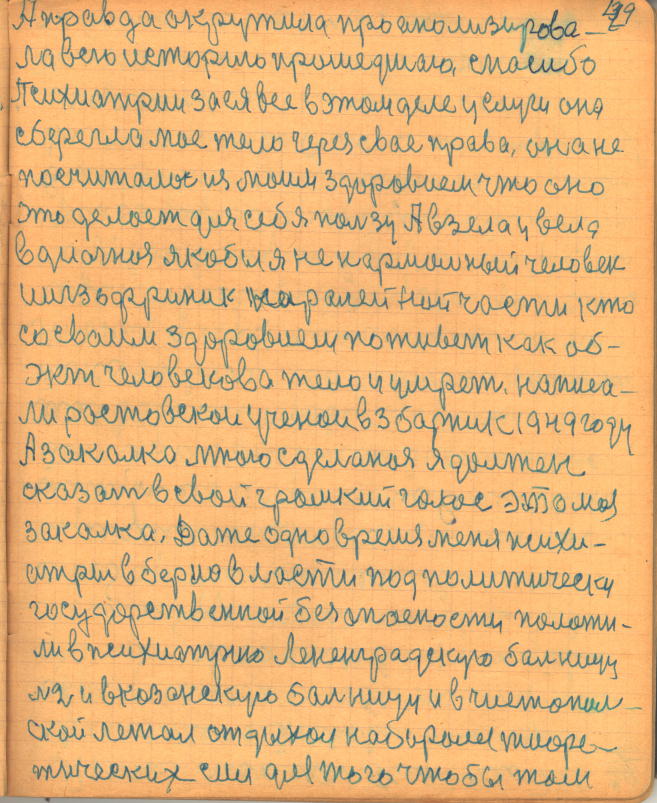 199
А правда окрутила проанолизирова-
ла всю историю прошедшаю, спасибо
Психиатрии за ея все в этом деле услуги она
сберегла мое тело через свае права, она не
посчиталос из моим здоровием что оно
это делает для себя ползу А взела и вела
в диогноз якобы я не нармолный человек
шизофриник
ной части кто
со сваим здоровием поживет как об-
экт человекова тело и умрет. написа-
ли ростовской ученой в сбарник 1949 году
А закалка мною сделаноя я должен
сказат в свой громкий голос это моя
закалка. Даже одно время меня психи-
атрия в берио власти под политическу
государственной безопасности положи-
ли в психиатрию Ленинградскую балницу
№2 и в козанскую балницу и в чистопол-
ской летал отдыхол набиролся тиоре-
тических сил для того чтобы там